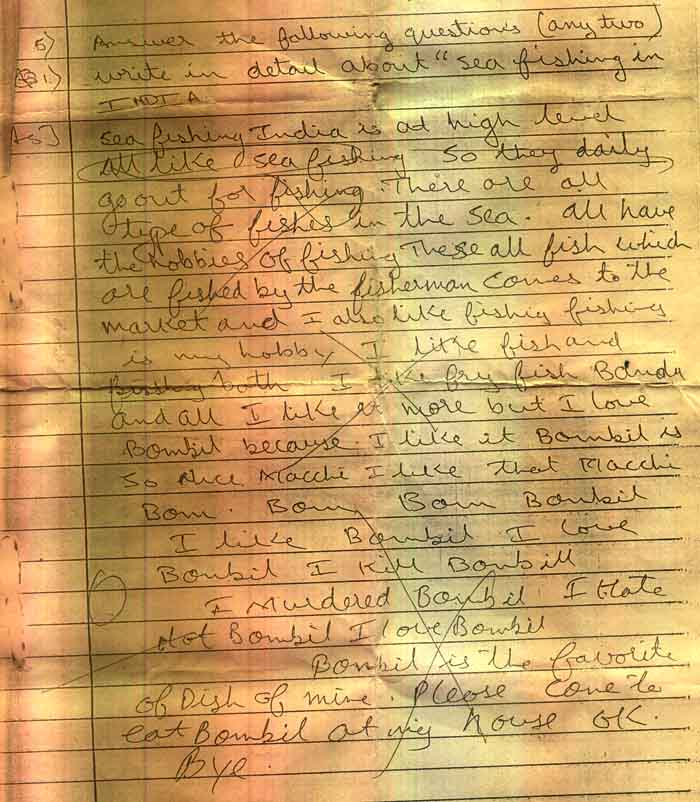 5) Answer the following questions (any two)
Q 1) write in detail about "sea fishing in
INDIA
As] Sea fishing India is at high level
All like sea fishing So they daily
go out for fishing. There are all
type of fishes in the sea. All have
the hobbies of fishing These all fish which
are fished by the fisherman comes to the
market and I also like fishig fishing
is my hobby I like fish and
both I like fry fish Banda
and all I like it more but I love
Bombil because I like it Bombil is
so Nice Macchi I like that Macchi
Bom. Bom Bom Bombil
I like Bombil I love
Bombil I Kill Bombill
I Murdered Bombil I Hate
Not Bombil I love Bombil
Bombil is the favorite
of Dish of mine. Please come to
eat Bombil at my house OK.
Bye.